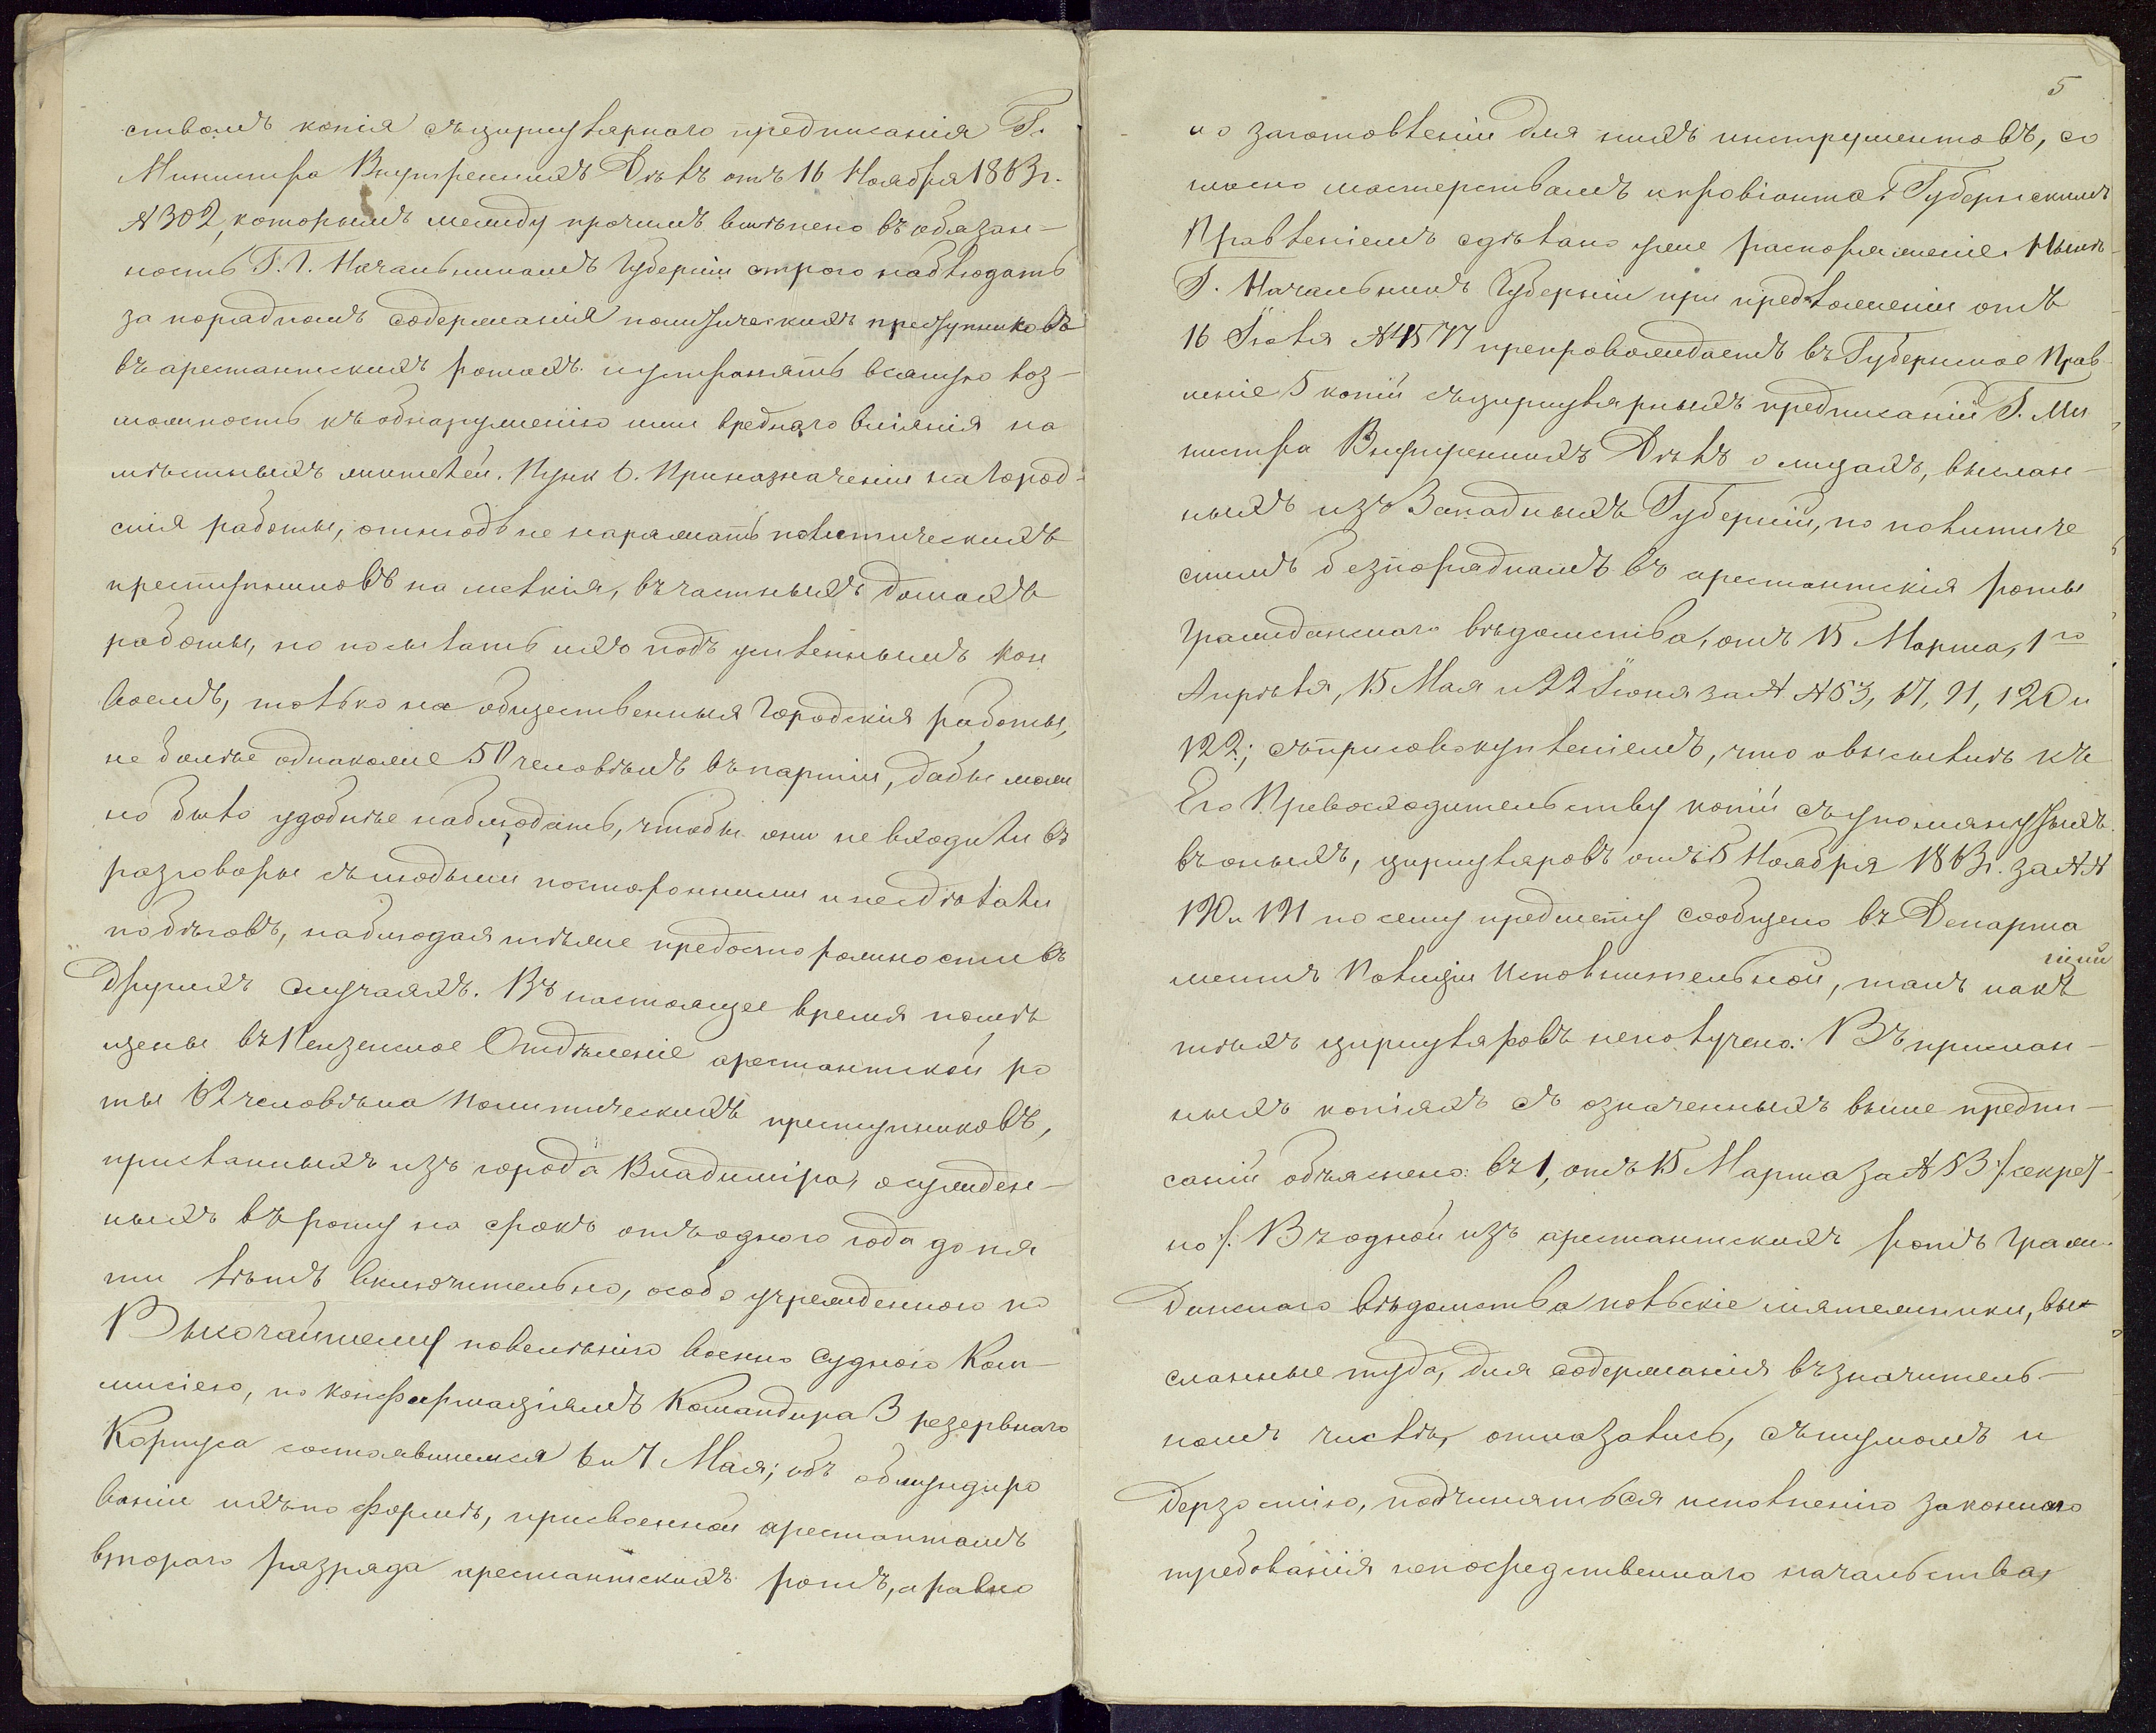 ствомъ копія съ циркулярнаго предписанія Г.
Министра Внутреннихъ Дѣлъ отъ 16 Ноября 1863 г.
№ 302, которымъ между прочимъ вмѣнено въ обязан-
ность Г.Г. Начальникамъ Губерніи строго наблюдать
за порядкомъ содержанія политическихъ преступниковъ
въ арестантскихъ ротахъ и устранять всякую воз-
можность къ обнаруженію ими вреднаго вліянія на
мѣстныхъ жителей. Пунк 6. При назначеніи на Город-
скія работы, отнюдь не наряжать политическихъ
преступниковъ на мелкія, въ частныхъ домахъ
работы, но посылать ихъ подъ усиленнымъ кон
воемъ, только на общественныя Городскія работы,
не болѣе однакоже 50 человѣкъ въ партіи, дабы мож
но было удобнѣе наблюдать, чтобы они не входили въ
разговоры съ людьми посторонними и не дѣлали
побѣговъ, наблюдая тѣже предосторожности въ
другихъ случаяхъ. Въ настоящее время помѣ
щены въ Пензенское Отдѣленіе арестантской ро
ты 62 человѣка политическихъ преступниковъ,
присланныхъ изъ города Владиміра, осужден-
ныхъ въ роту на срокъ отъ одного года до пя
ти лѣтъ включительно, особо учрежденною по
Высочайшему повелѣнію военно судною Ком-
мисіею, по конфирмаціямъ Командира 3 резервнаго
Корпуса состоявшимся 6 и 7 Мая; объ обмундиро
ваніи ихъ по формѣ, присвоенной арестантамъ
втораго разряда арестантскихъ ротъ, а равно
5
и о заготовленіи для нихъ инструментовъ, со
гласно мастерствамъ и провіанта. Губернскимъ
Правленіемъ сдѣлано уже распоряженіе. Нынѣ
Г. Начальникъ Губерніи при предложеніи отъ
16 Іюля № 4577 препровождаетъ въ Губернское Прав
леніе 5 копій съ циркулярныхъ предписаній Г. Ми
нистра Внутреннихъ Дѣлъ о лицахъ, выслан-
ныхъ изъ Западныхъ Губерній, по политиче
скимъ безпорядкамъ въ арестантскія роты
гражданскаго вѣдомства, отъ 15 Марта, 1го
Апрѣля, 15 Мая и 22 Іюня за № № 53, 67, 91, 120 и
122; съ присовокупленіемъ, что о высылкѣ къ
Его Превосходительству копій съ упомянутыхъ
въ оныхъ, циркуляровъ отъ 15 Ноября 1863 г. за № №
190 и 191 по сему предмету сообщено въ Департа
ментъ Полиціи Исполнительной, такъ какъ
тѣхъ циркуляровъ не получено. Въ прислан-
ныхъ копіяхъ съ означенныхъ выше предпи-
саній объяснено: въ 1, отъ 15 Марта за № 53 /секрет-
но/. Въ одной изъ арестантскихъ ротъ граж-
данскаго вѣдомства польскіе мятежники, вы-
сланные туда, для содержанія въ значитель-
номъ числѣ, отказались, съ шумомъ и
дерзостію, подчиняться исполненію законнаго
требованія непосредственнаго начальства,